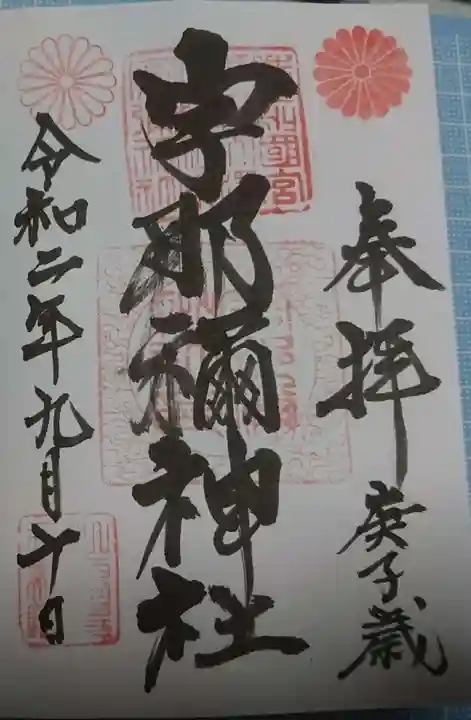 奉拝
庚子歳
宇那禰神社
令和二年九月十日